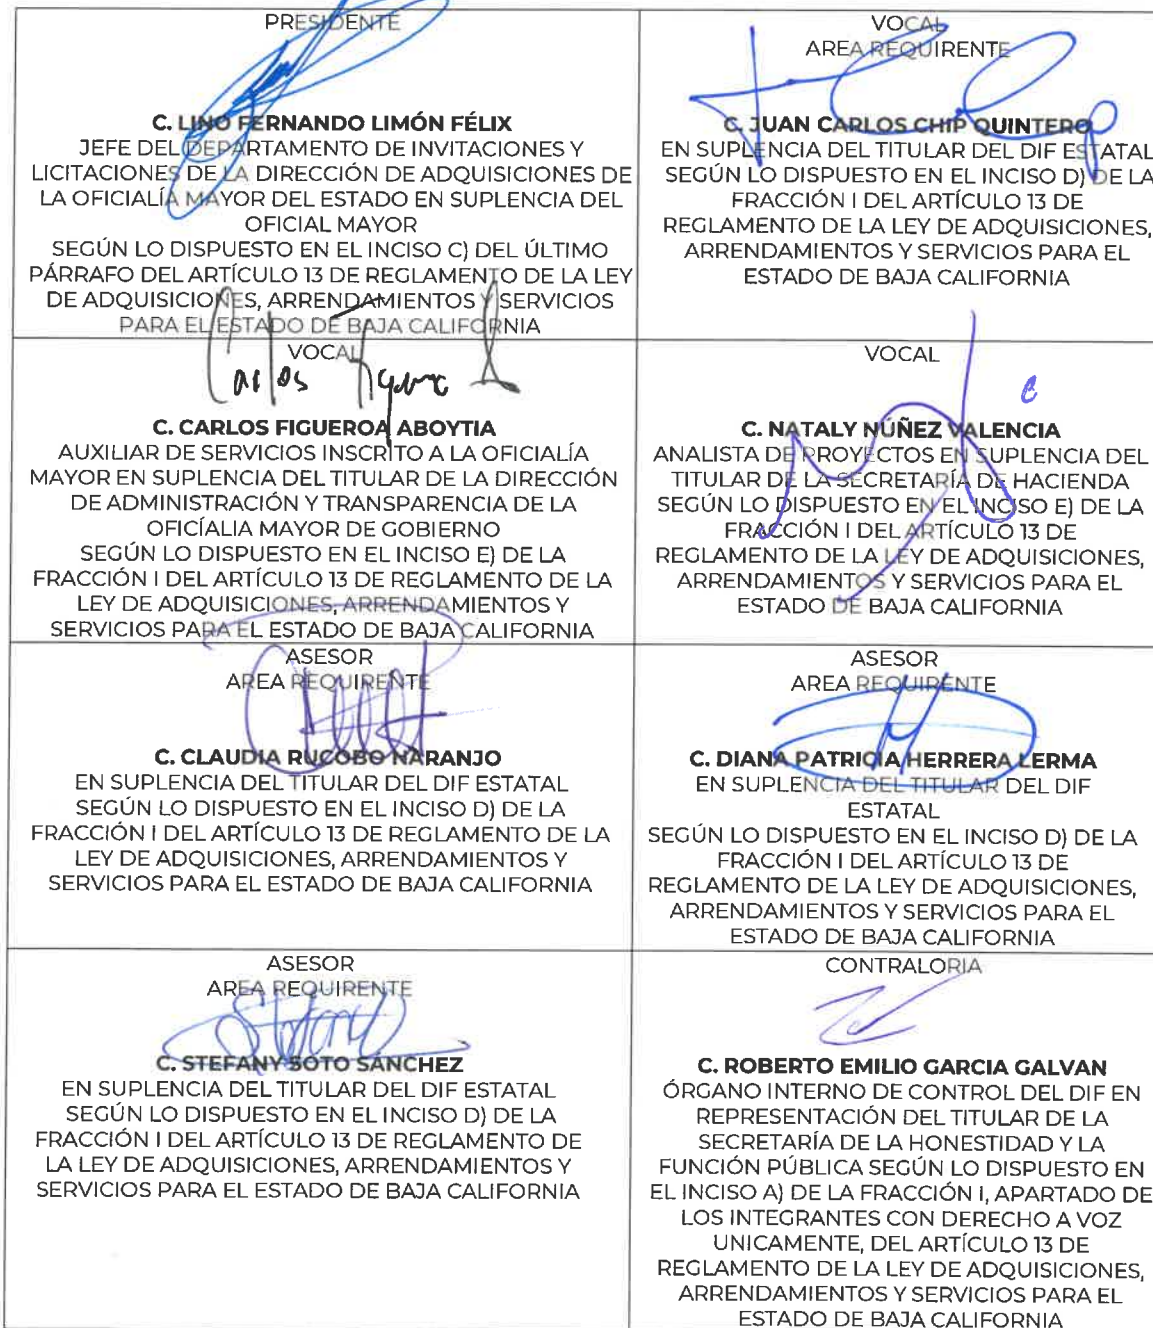 PRESIDENTE
C. LINO FERNANDO LIMÓN FÉLIX
JEFE DEL DEPARTAMENTO DE INVITACIONES Y
LICITACIONES DE LA DIRECCIÓN DE ADQUISICIONES DE
LA OFICIALÍA MAYOR DEL ESTADO EN SUPLENCIA DEL
OFICIAL MAYOR
SEGÚN LO DISPUESTO EN EL INCISO C) DEL ÚLTIMO
PÁRRAFO DEL ARTÍCULO 13 DE REGLAMENTO DE LA LEY
DE ADQUISICIONES, ARRENDAMIENTOS Y SERVICIOS
PARA EL ESTADO DE BAJA CALIFORNIA
VOCAL
AREA REQUIRENTE
C. JUAN CARLOS CHIP QUINTERO
EN SUPLENCIA DEL TITULAR DEL DIF ESTATAL
SEGÚN LO DISPUESTO EN EL INCISO D) DE LA
FRACCIÓN I DEL ARTÍCULO 13 DE
REGLAMENTO DE LA LEY DE ADQUISICIONES,
ARRENDAMIENTOS Y SERVICIOS PARA EL
ESTADO DE BAJA CALIFORNIA
VOCAL
Carlos Figueroa
C. CARLOS FIGUEROA ABOYTIA
AUXILIAR DE SERVICIOS INSCRITO A LA OFICIALÍA
MAYOR EN SUPLENCIA DEL TITULAR DE LA DIRECCIÓN
DE ADMINISTRACIÓN Y TRANSPARENCIA DE LA
OFICÍALIA MAYOR DE GOBIERNO
SEGÚN LO DISPUESTO EN EL INCISO E) DE LA
FRACCIÓN I DEL ARTÍCULO 13 DE REGLAMENTO DE LA
LEY DE ADQUISICIONES, ARRENDAMIENTOS Y
SERVICIOS PARA EL ESTADO DE BAJA CALIFORNIA
VOCAL
C. NATALY NÚÑEZ VALENCIA
ANALISTA DE PROYECTOS EN SUPLENCIA DEL
TITULAR DE LA SECRETARÍA DE HACIENDA
SEGÚN LO DISPUESTO EN EL INCISO E) DE LA
FRACCIÓN I DEL ARTÍCULO 13 DE
REGLAMENTO DE LA LEY DE ADQUISICIONES,
ARRENDAMIENTOS Y SERVICIOS PARA EL
ESTADO DE BAJA CALIFORNIA
ASESOR
AREA REQUIRENTE
C. CLAUDIA RUCOBO NARANJO
EN SUPLENCIA DEL TITULAR DEL DIF ESTATAL
SEGÚN LO DISPUESTO EN EL INCISO D) DE LA
FRACCIÓN I DEL ARTÍCULO 13 DE REGLAMENTO DE LA
LEY DE ADQUISICIONES, ARRENDAMIENTOS Y
SERVICIOS PARA EL ESTADO DE BAJA CALIFORNIA
ASESOR
AREA REQUIRENTE
C. DIANA PATRICIA HERRERA LERMA
EN SUPLENCIA DEL TITULAR DEL DIF
ESTATAL
SEGÚN LO DISPUESTO EN EL INCISO D) DE LA
FRACCIÓN I DEL ARTÍCULO 13 DE
REGLAMENTO DE LA LEY DE ADQUISICIONES,
ARRENDAMIENTOS Y SERVICIOS PARA EL
ESTADO DE BAJA CALIFORNIA
ASESOR
AREA REQUIRENTE
C. STEFANY SOTO SANCHEZ
EN SUPLENCIA DEL TITULAR DEL DIF ESTATAL
SEGÚN LO DISPUESTO EN EL INCISO D) DE LA
FRACCIÓN I DEL ARTÍCULO 13 DE REGLAMENTO DE
LA LEY DE ADQUISICIONES, ARRENDAMIENTOS Y
SERVICIOS PARA EL ESTADO DE BAJA CALIFORNIA
CONTRALORIA
C. ROBERTO EMILIO GARCIA GALVAN
ÓRGANO INTERNO DE CONTROL DEL DIF EN
REPRESENTACIÓN DEL TITULAR DE LA
SECRETARÍA DE LA HONESTIDAD Y LA
FUNCIÓN PÚBLICA SEGÚN LO DISPUESTO EN
EL INCISO A) DE LA FRACCIÓN I, APARTADO DE
LOS INTEGRANTES CON DERECHO A VOZ
UNICAMENTE, DEL ARTÍCULO 13 DE
REGLAMENTO DE LA LEY DE ADQUISICIONES,
ARRENDAMIENTOS Y SERVICIOS PARA EL
ESTADO DE BAJA CALIFORNIA